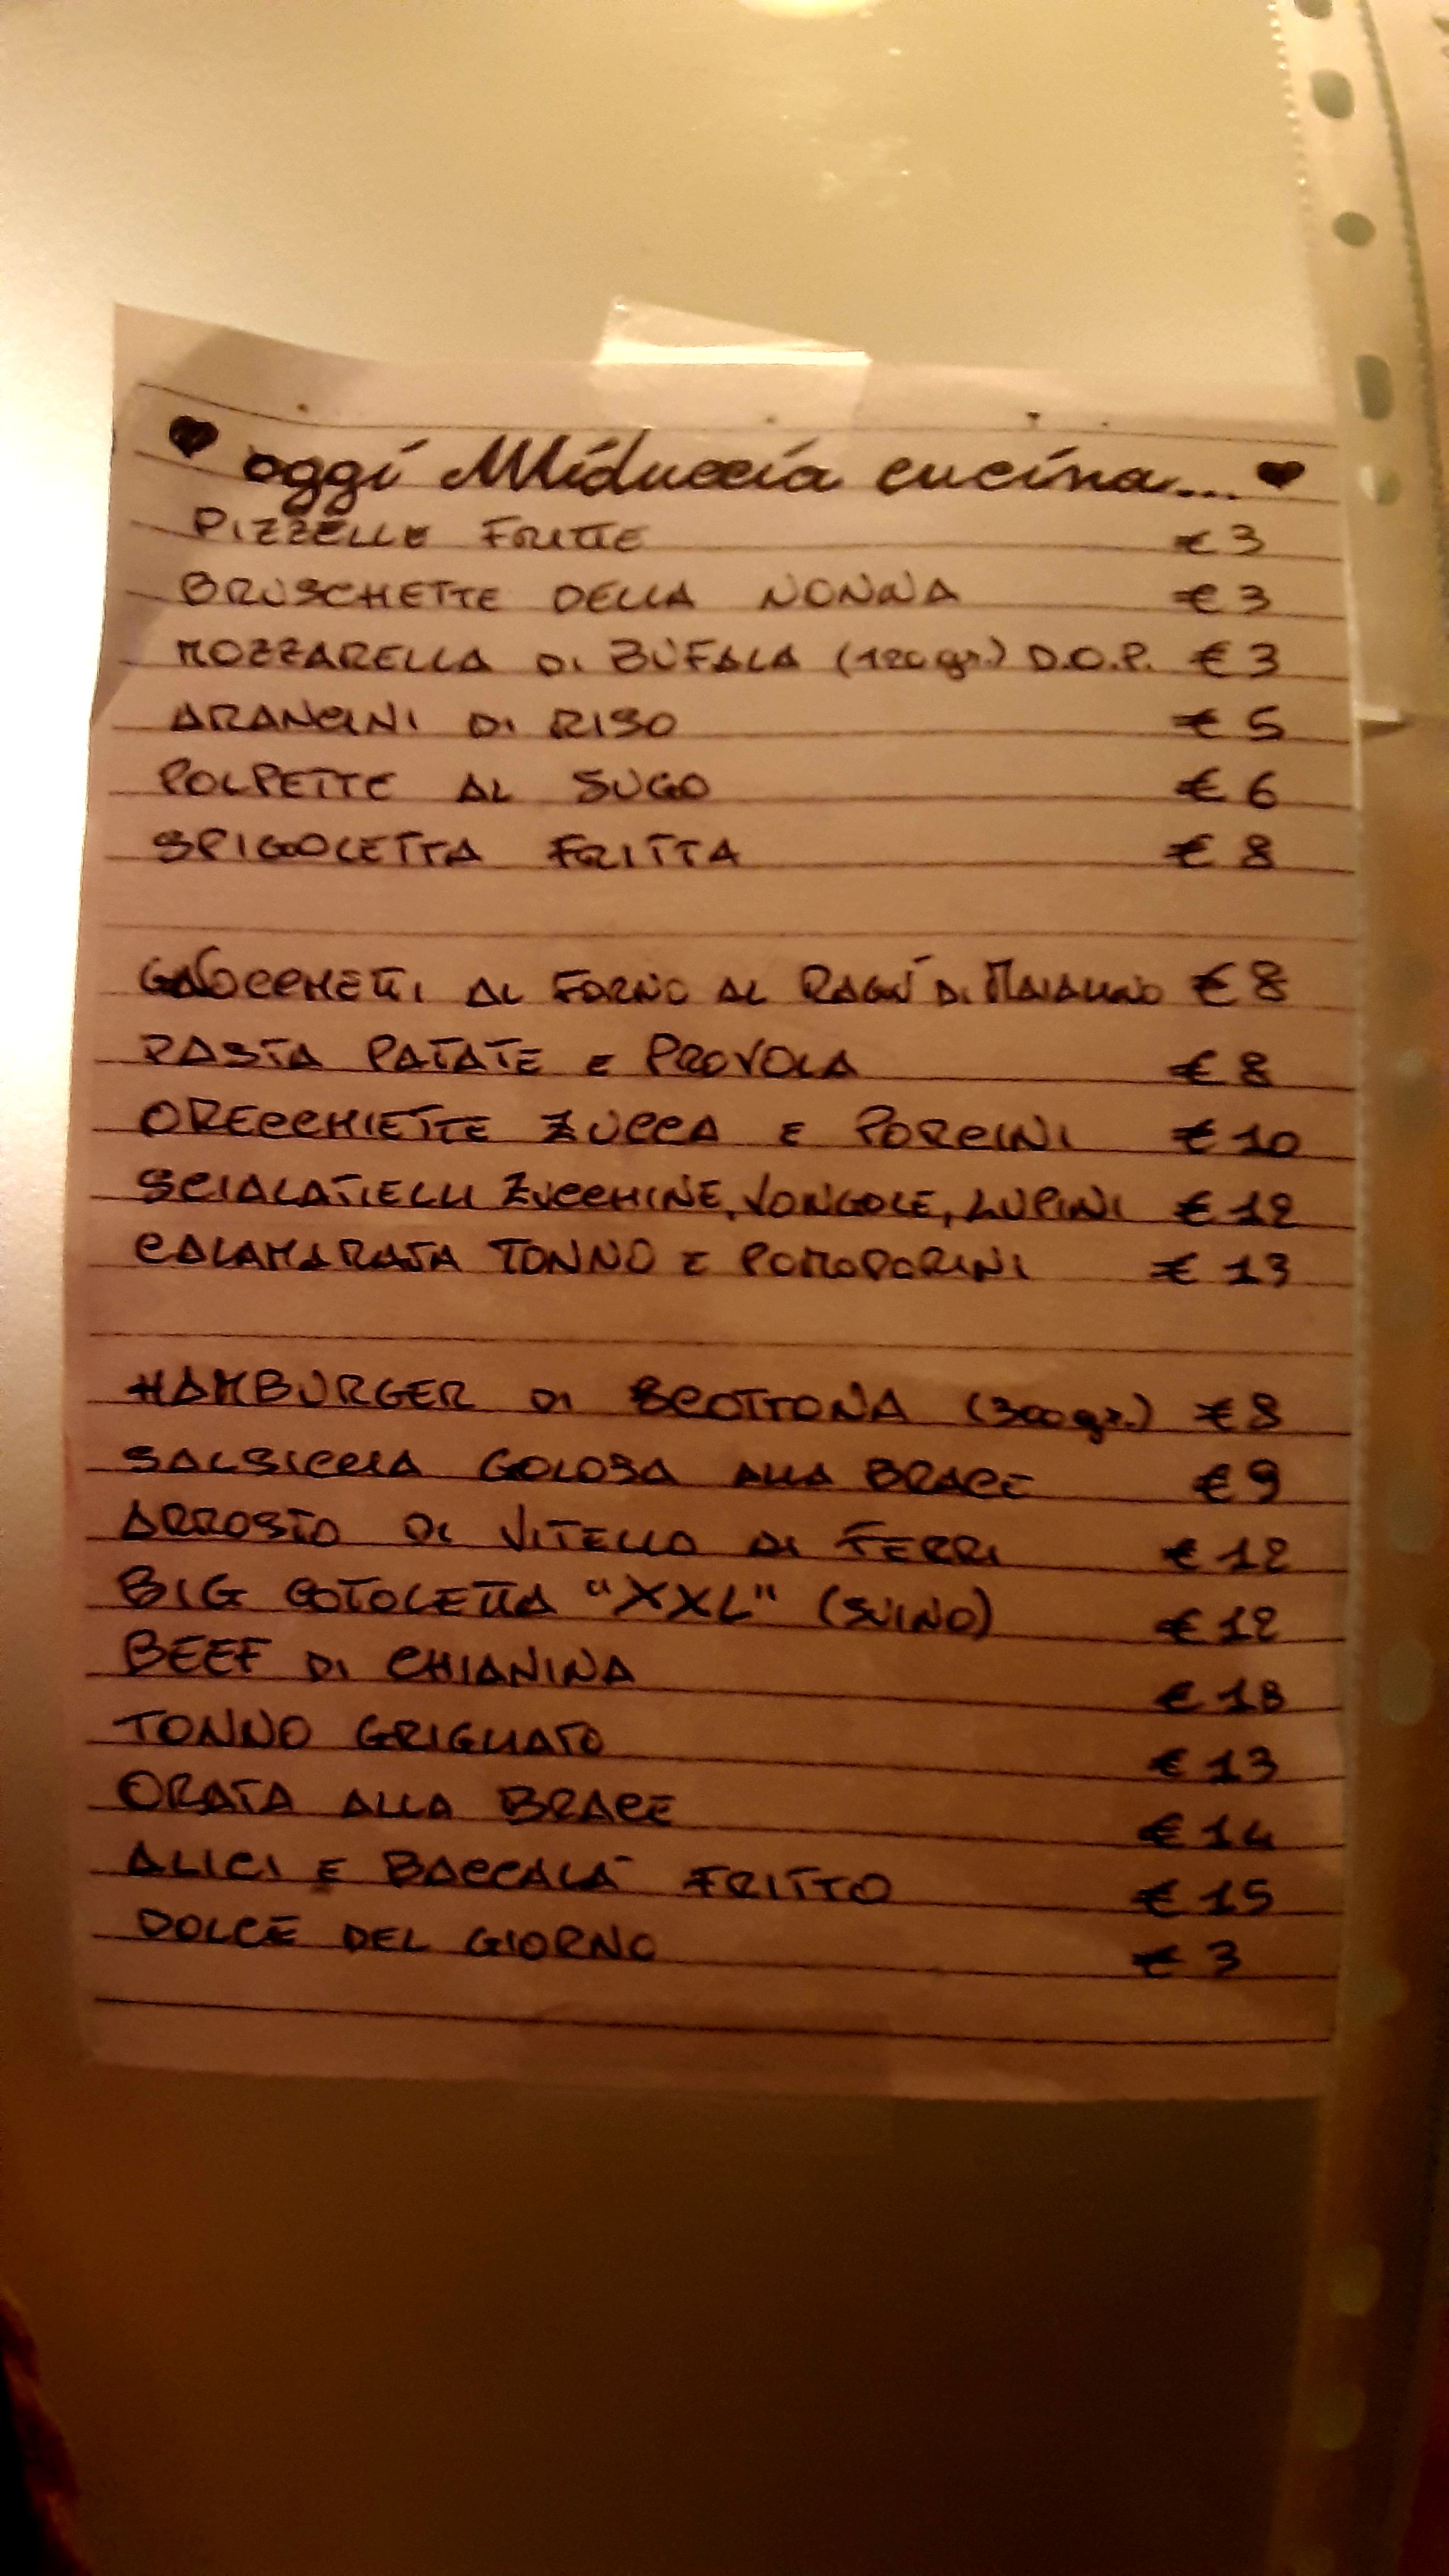 ♥ oggi Miduccia cucina... ♥
PIZZELLE FRITTE € 3
BRUSCHETTE DELLA NONNA € 3
MOZZARELLA DI BUFALA (120 gr.) D.O.P. € 3
ARANCINI DI RISO € 5
POLPETTE AL SUGO € 6
SPIGOLETTA FRITTA € 8
GNOCCHETTI AL FORNO AL RAGÚ DI MAIALINO € 8
PASTA PATATE E PROVOLA € 8
ORECCHIETTE ZUCCA E PORCINI € 10
SCIALATIELLI ZUCCHINE, VONGOLE, LUPINI € 12
CALAMARATA TONNO E POMODORINI € 13
HAMBURGER DI SCOTTONA (300 gr.) € 8
SALSICCIA GOLOSA ALLA BRACE € 9
ARROSTO DI VITELLO AI FERRI € 12
BIG COTOLETTA "XXL" (SUINO) € 12
BEEF DI CHIANINA € 18
TONNO GRIGLIATO € 13
ORATA ALLA BRACE € 14
ALICI E BACCALÀ FRITTO € 15
DOLCE DEL GIORNO € 3